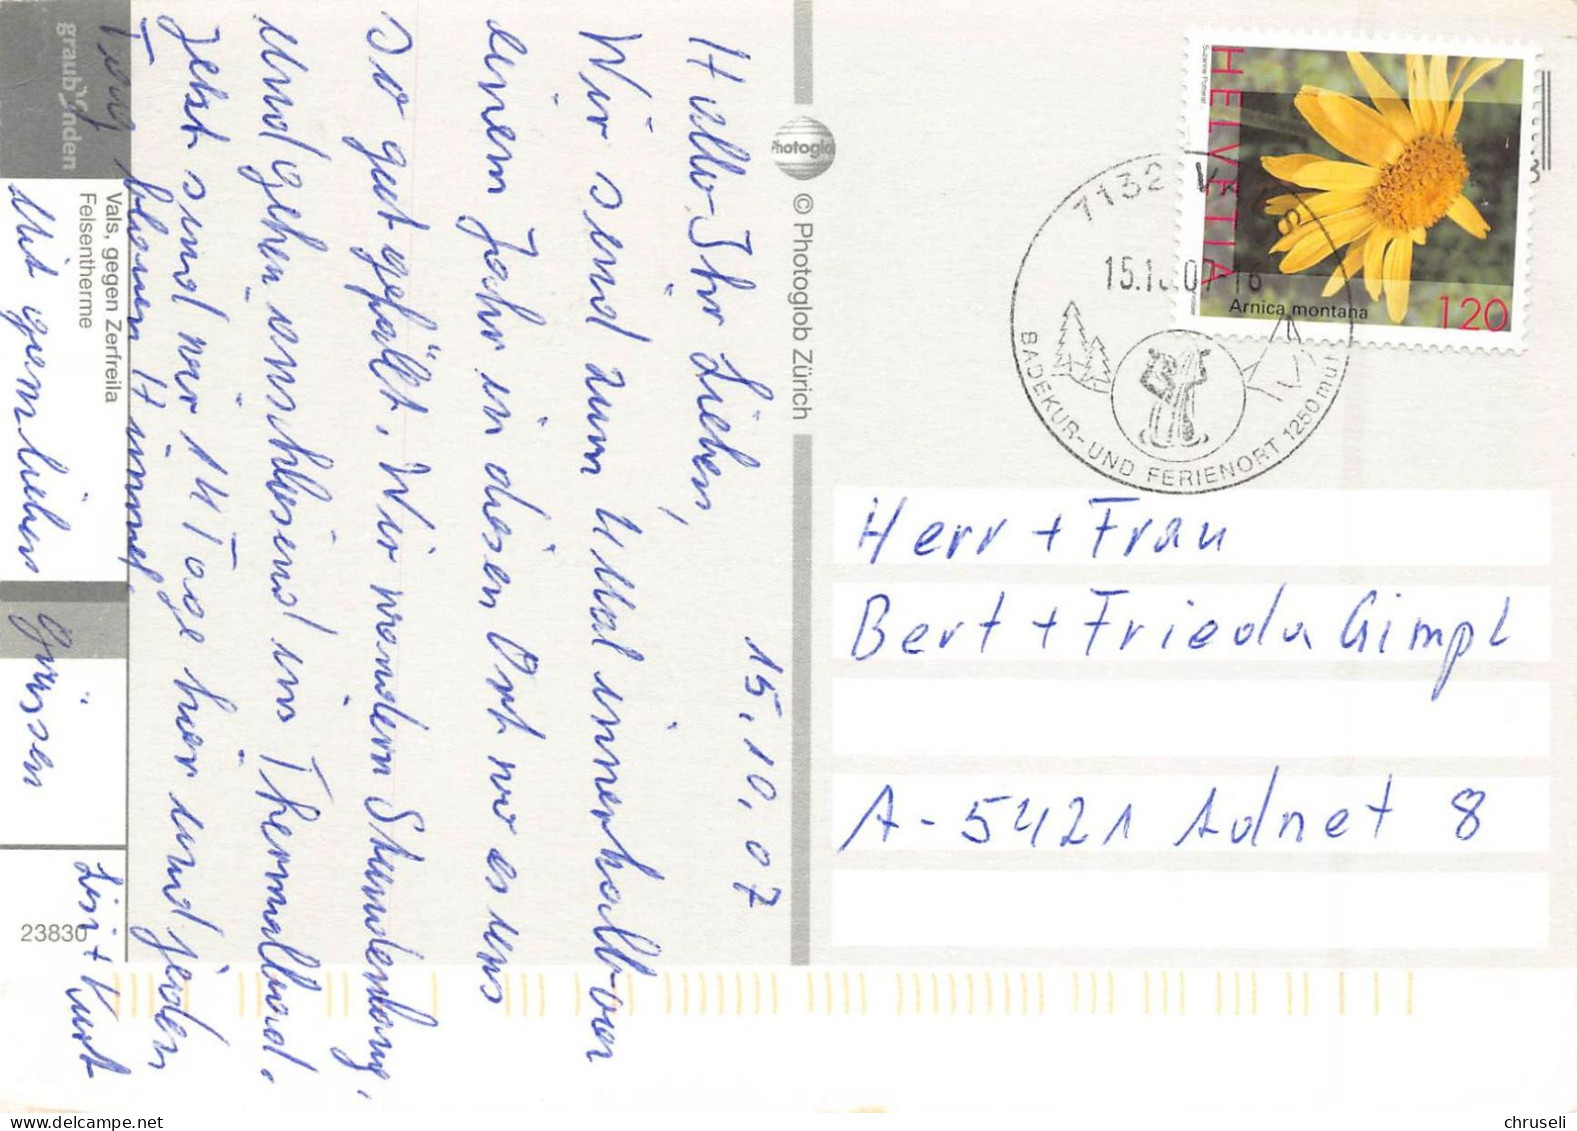 graubünden
Vals, gegen Zerfreila
Felsentherme
23830
© Photoglob Zürich
Photoglo
15.10.07
Hallo Ihr Lieben,
Wir sind zum II Mal innerhalb von
einem Jahr in diesen Ort wo es uns
so gut gefällt. Wir wandern Stundenlang,
und gehen anschliesend ins Thermalbad.
Jetzt sind wir 14 Tage hier und jeden
Tag blauen Himmel,
Mit ganz lieben Grüssen
Lisi + Kurt
HELVETIA
Arnica montana
120
7132 VALS
15.10.07-16
BADEKUR- UND FERIENORT 1250 müM
Herr + Frau
Bert + Frieda Gimpl
A-5421 Adnet 8
chruseli